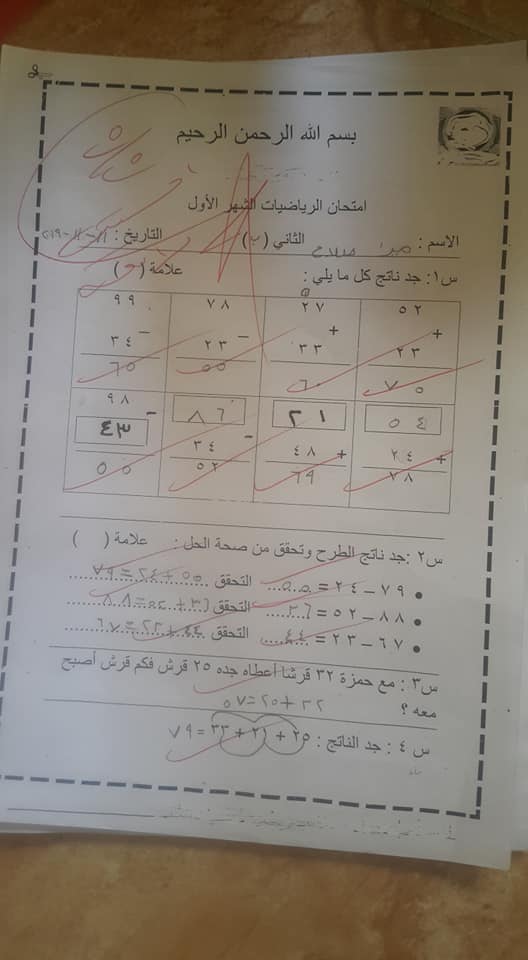 بسم الله الرحمن الرحيم
امتحان الرياضيات الشهر الأول
الاسم : الثاني ( ب ) التاريخ :
س١: جد ناتج كل ما يلي : علامة ( )
٥٢ ٢٧ ٧٨ ٩٩
+ + − −
٢٣ ٣٣ ٢٣ ٣٤
٧٥ ٦٠ ٥٥ ٦٥
٥٤ ٢١ ٨٦ ٩٨
+ + − −
٢٤ ٤٨ ٣٤ ٤٣
٧٨ ٦٩ ٥٢ ٥٥
س٢ :جد ناتج الطرح وتحقق من صحة الحل : علامة ( )
٧٩ – ٢٤ = ٥٥ التحقق ٥٥+٢٤=٧٩
٨٨ – ٥٢ = ٣٦ التحقق ٣٦+٥٢=٨٨
٦٧ – ٢٣ = ٤٤ التحقق ٤٤+٢٣=٦٧
س٣ : مع حمزة ٣٢ قرشا أعطاه جده ٢٥ قرش فكم قرش أصبح
معه ؟ ٣٢+٢٥=٥٧
س ٤ : جد الناتج : ٢٥ + ٢١ + ٣٣ = ٧٩